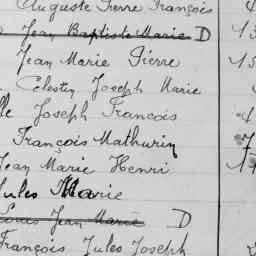 Auguste Pierre François
Jean Baptiste Marie D
Jean Marie Pierre
Célestin Joseph Marie
Joseph François
François Mathurin
Jean Marie Henri
Jules Marie
Louis Jean Marie D
François Jules Joseph